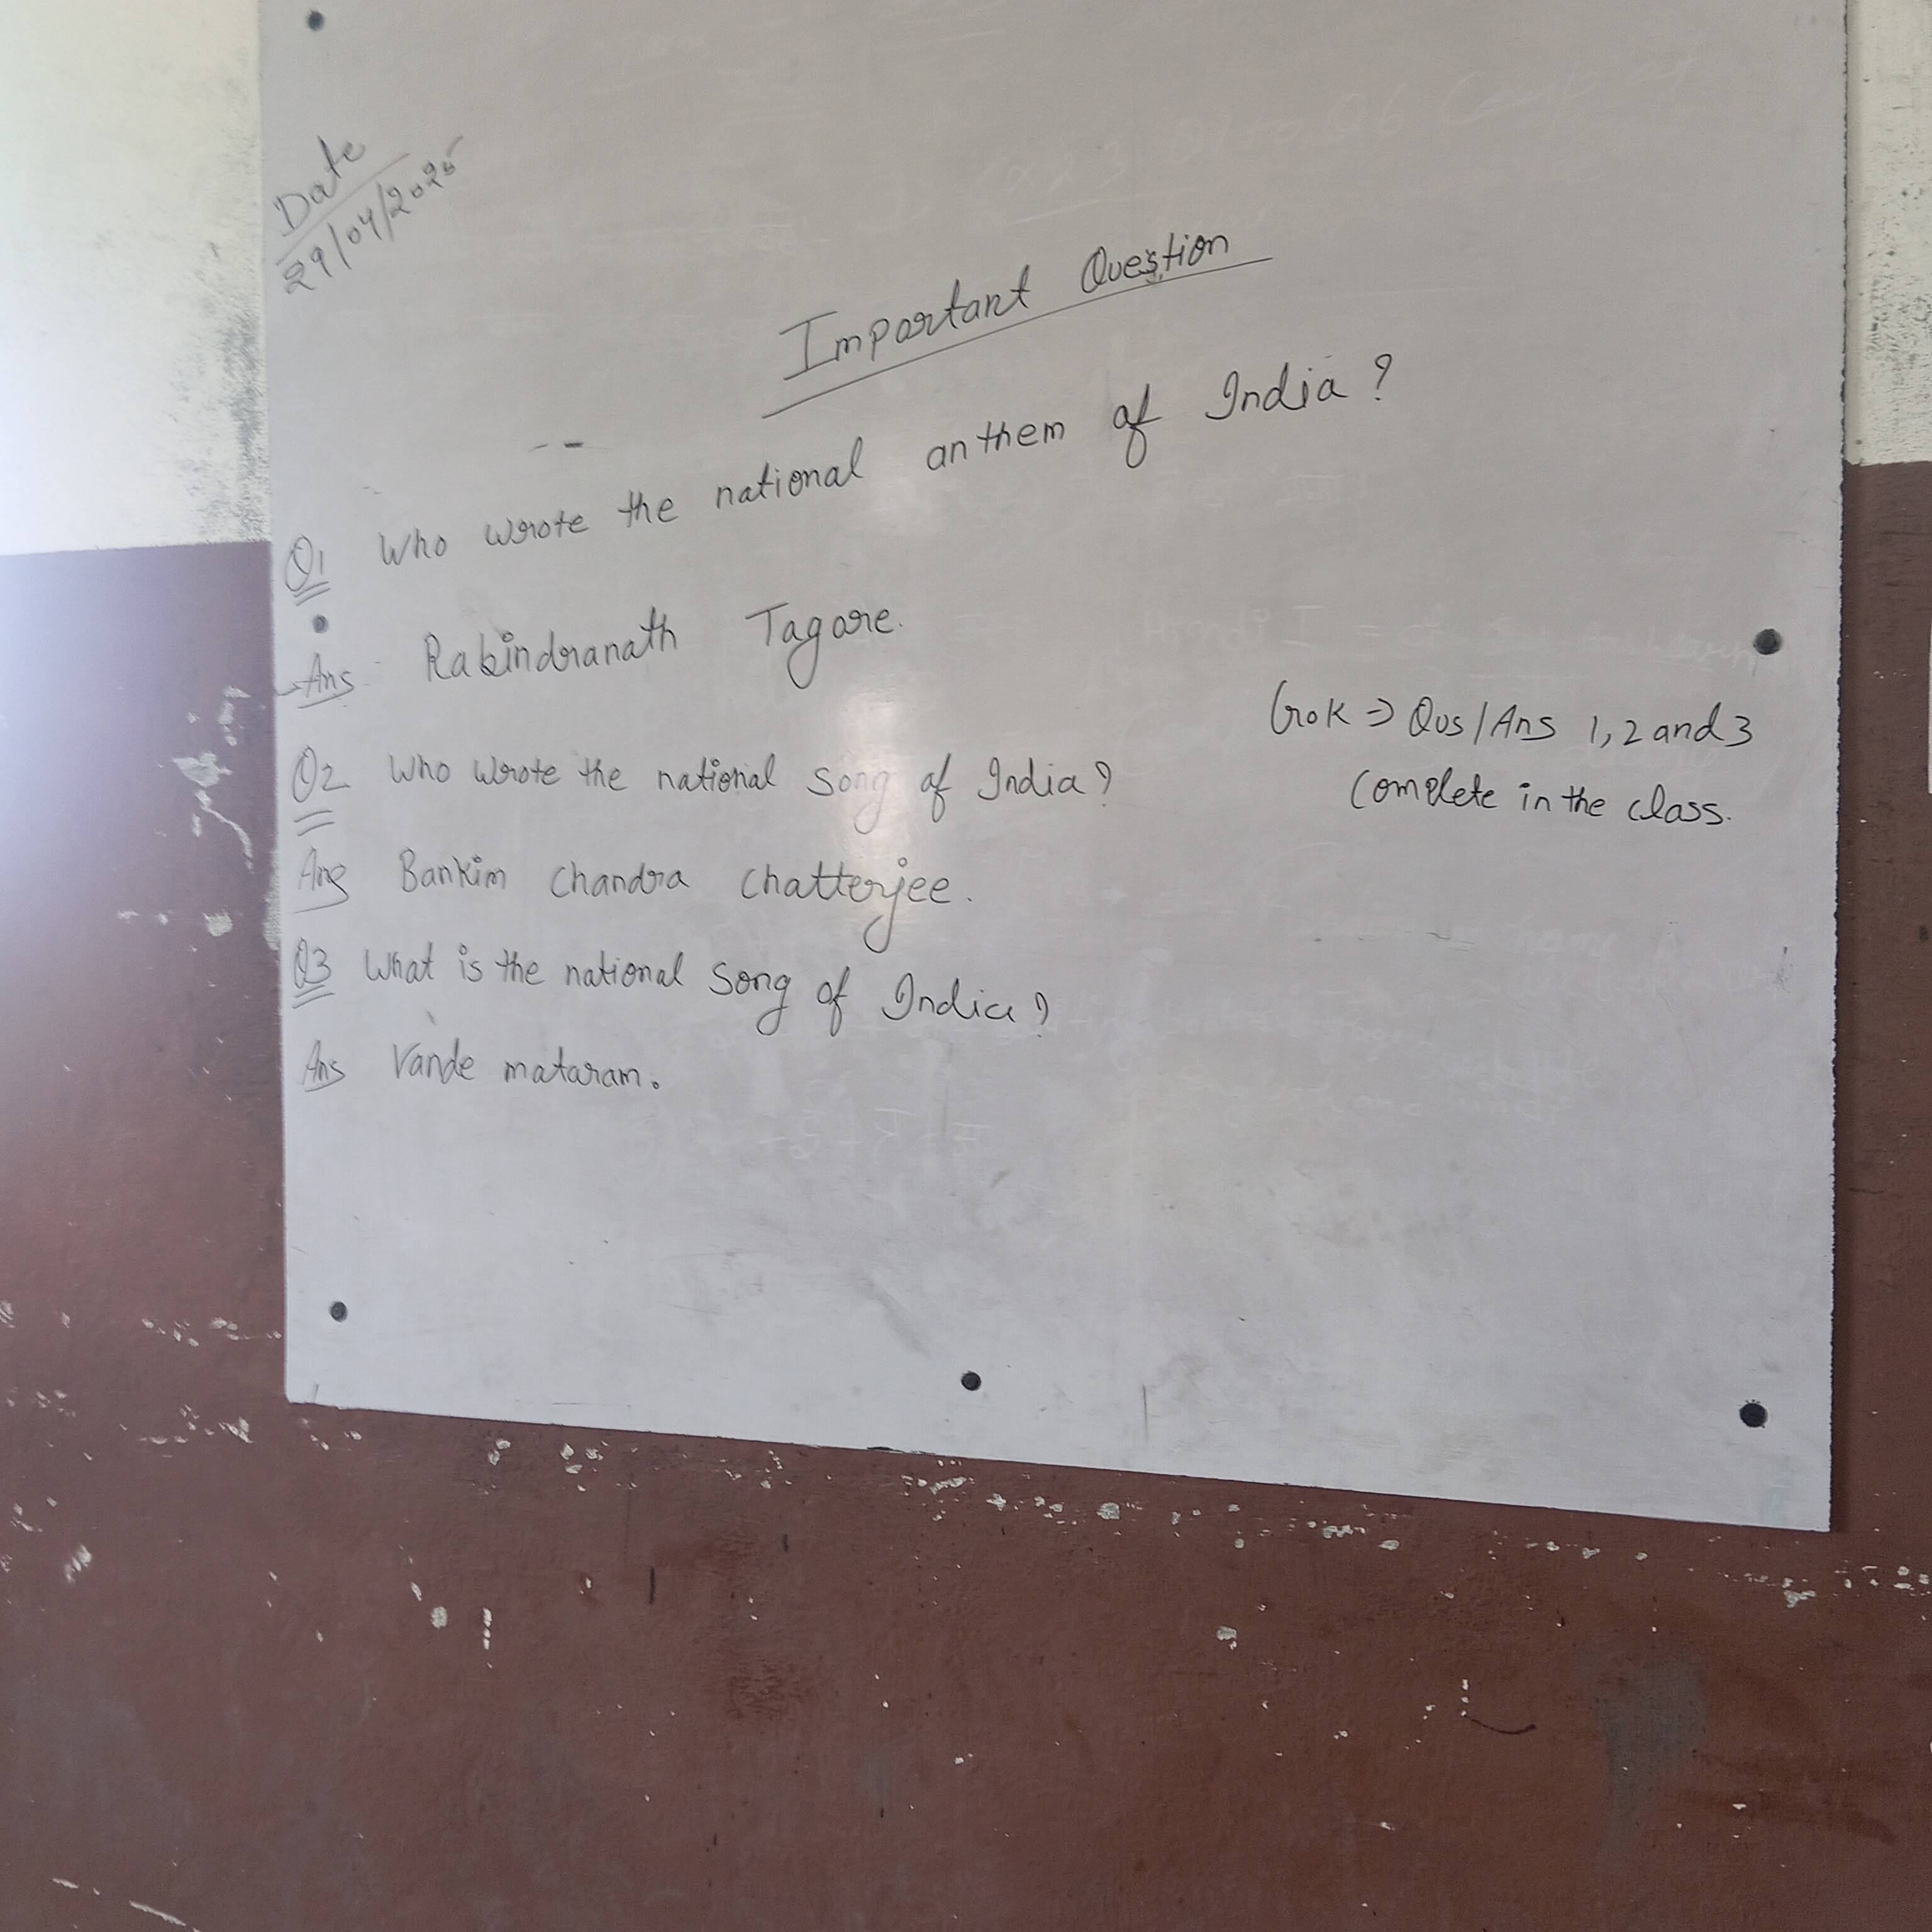 Date
29/04/2025
Important Question
Q1 Who wrote the national anthem of India?
Ans Rabindranath Tagore.
Q2 Who wrote the national song of India?
Ans Bankim Chandra Chatterjee.
Q3 What is the national song of India?
Ans Vande mataram.
G.K => Qus/Ans 1, 2 and 3
Complete in the class.